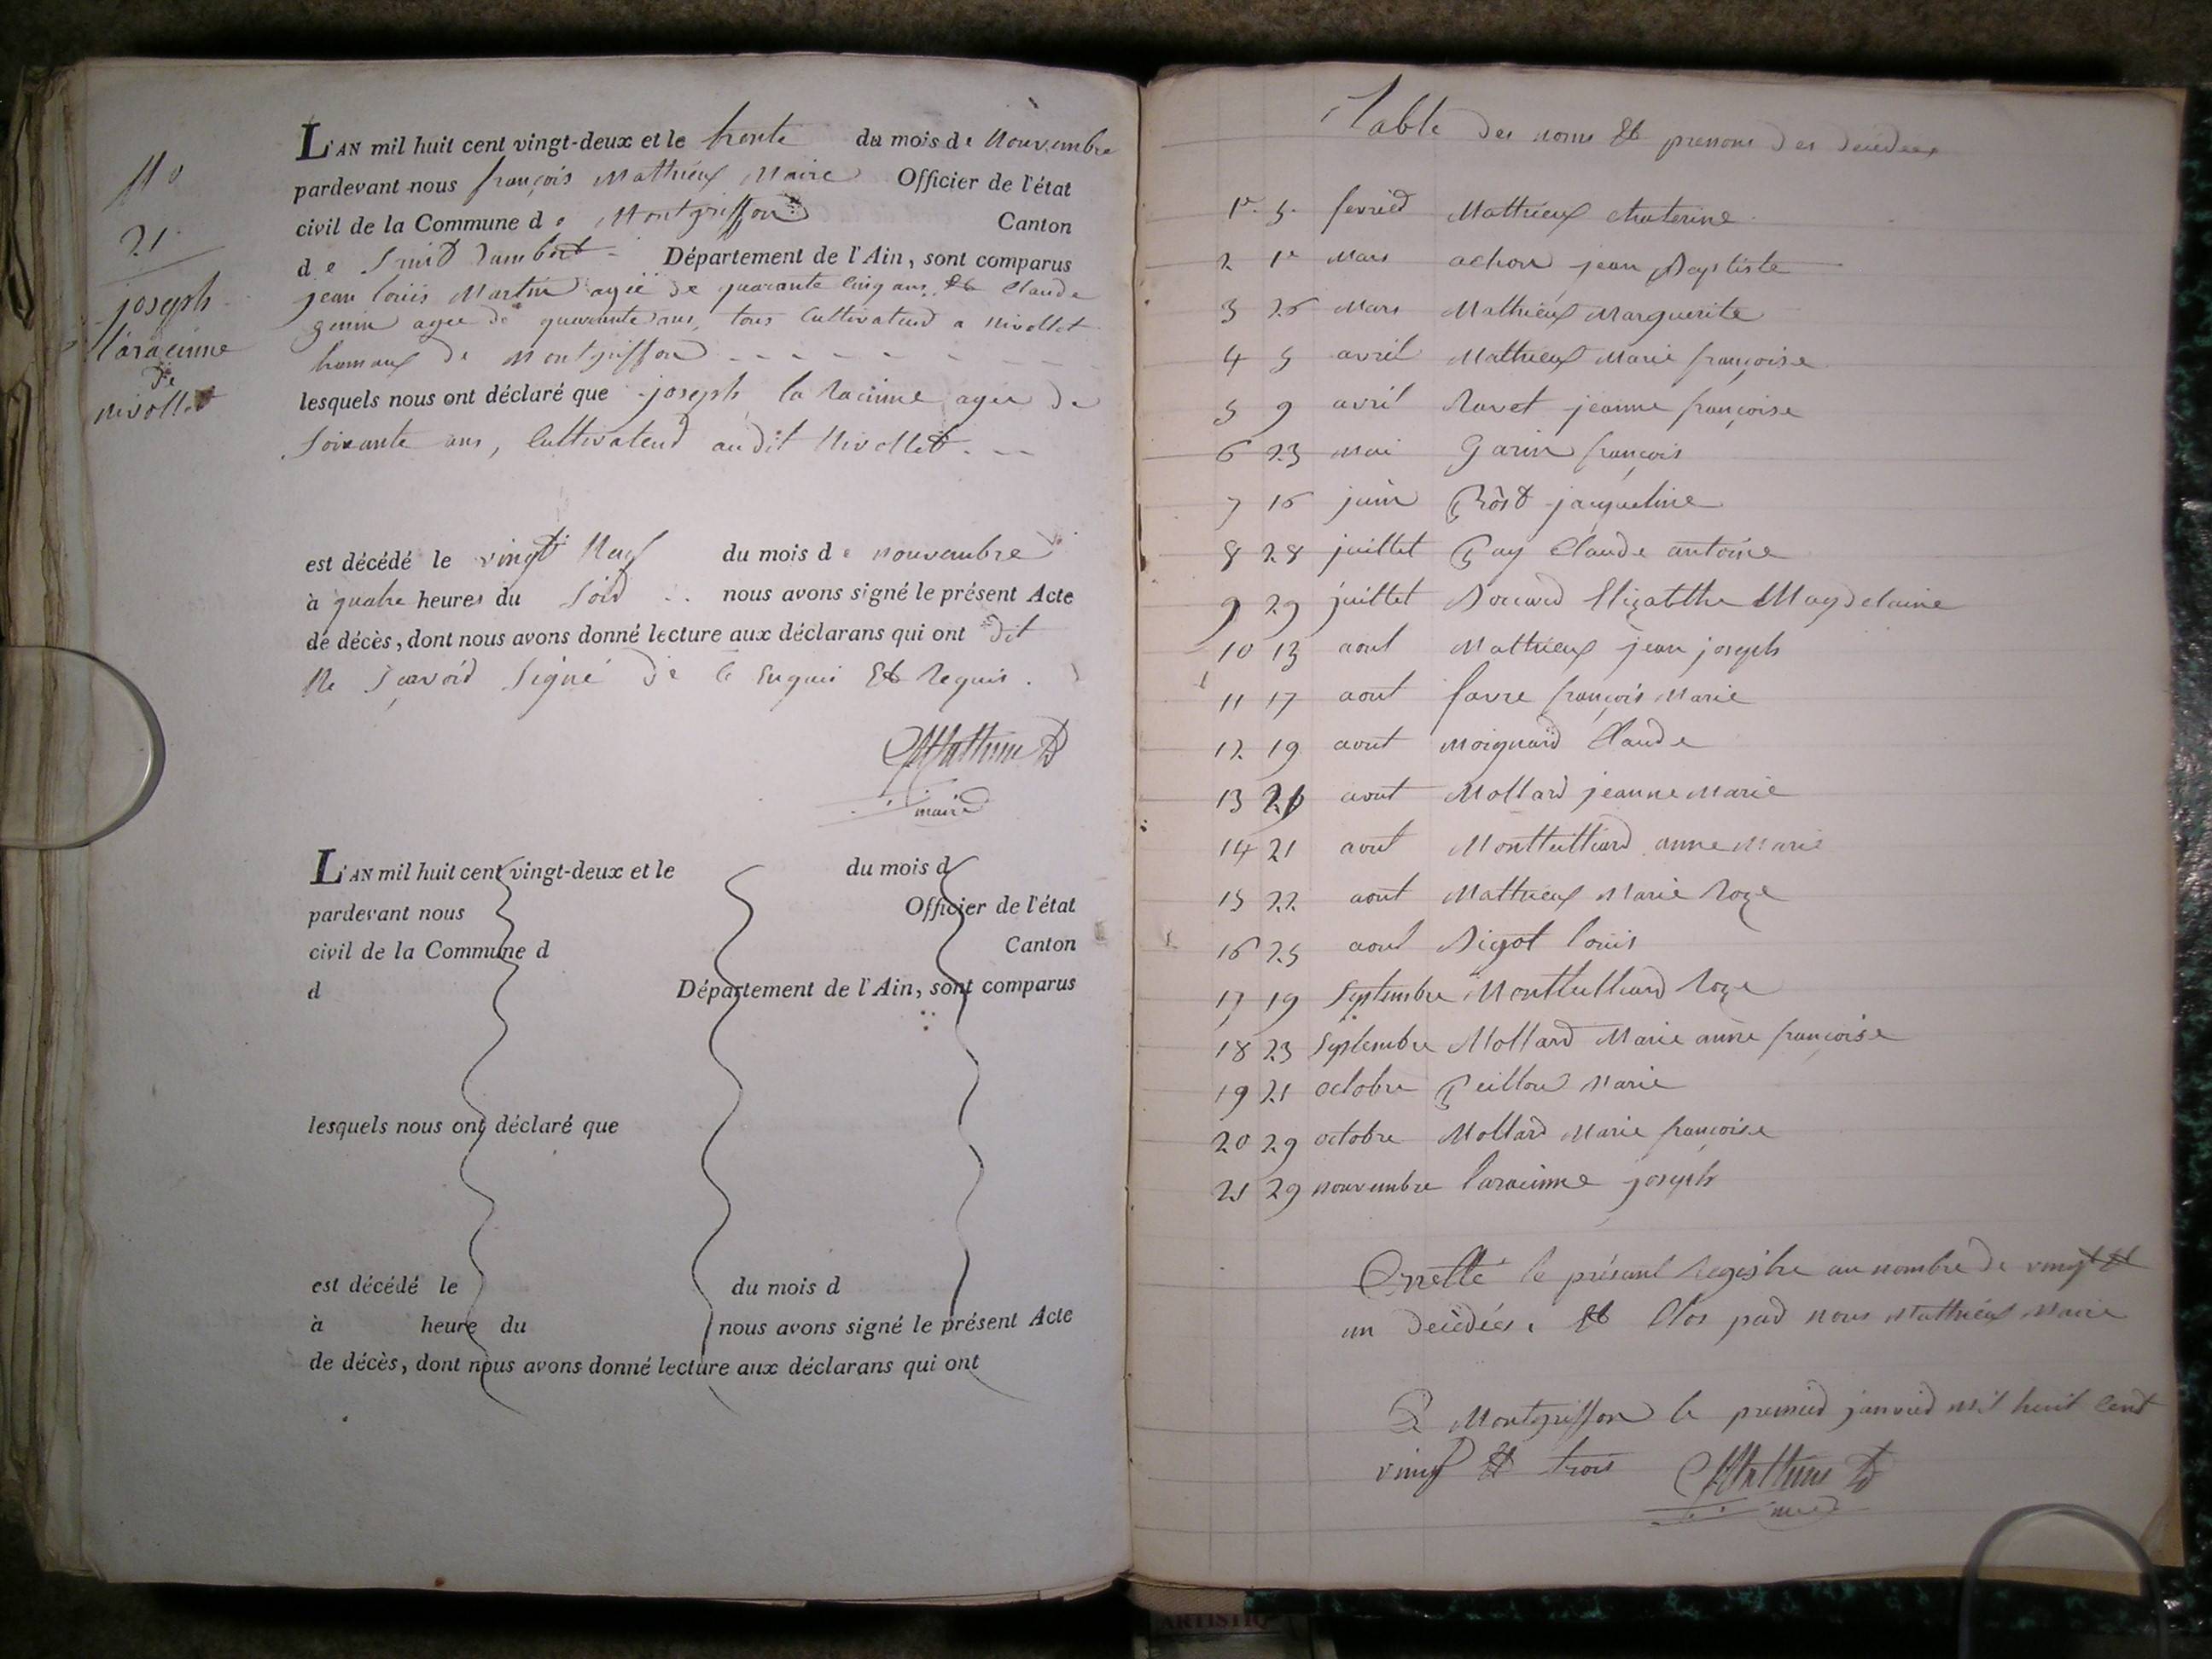 N°
21
joseph
laracinne
de
nivollet
L'AN mil huit cent vingt-deux et le trente du mois de Nouvembre
pardevant nous françois Mathieux Maire Officier de l'état
civil de la Commune de Montgriffon Canton
de Saint Rambert Département de l'Ain, sont comparus
jean louis Martin agée de quarante cinq ans, et Claude
genin agee de quarante ans, tous cultivateurs a nivollet
hamaux de Montgriffon
lesquels nous ont déclaré que joseph laracinne agée de
soixante ans, Cultivateur audit Nivollet.
est décédé le vingt Neuf du mois de nouvembre
à quatre heures du Soir nous avons signé le présent Acte
de décès, dont nous avons donné lecture aux déclarans qui ont dit
Ne Sçavoir Signé de ce Enquis Et Requis.
Mathieu
maire
L'AN mil huit cent vingt-deux et le du mois d
pardevant nous Officier de l'état
civil de la Commune d Canton
d Département de l'Ain, sont comparus
lesquels nous ont déclaré que
est décédé le du mois d
à heure du nous avons signé le présent Acte
de décès, dont nous avons donné lecture aux déclarans qui ont
Table des noms Et prenoms des decedees
1er 5 fevrier Mathieux Chaterine
2 1er Mars achon jean Baptiste
3 26 Mars Mathieux Marguerite
4 5 avril Mathieux Marie françoise
5 9 avril Ravet jeanne françoise
6 23 mai Garin françois
7 16 juin Prôst jacqueline
8 28 juillet Pay Claude antoine
9 29 juillet Elizabthe Magdelaine
10 13 aout Mathieux jean joseph
11 17 aout favre françois Marie
12 19 aout Moignard Claude
13 aout Mollard jeanne Marie
14 21 aout Montteilliard anne Marie
15 22 aout Mathieux Marie Roze
16 25 aout Bigot louis
17 19 Septembre Montteilliard Roze
18 23 Septembre Mollard Marie anne françoise
19 21 octobre Peillon Marie
20 29 octobre Mollard Marie françoise
21 29 nouvembre laracinne joseph
Arretté le présent Registre au nombre de vingt et
un decédées, Et Clos par nous Mathieux Maire
A Montgriffon le premier janvier mil huit Cent
vingt Et trois Mathieu
ARTISTIQ